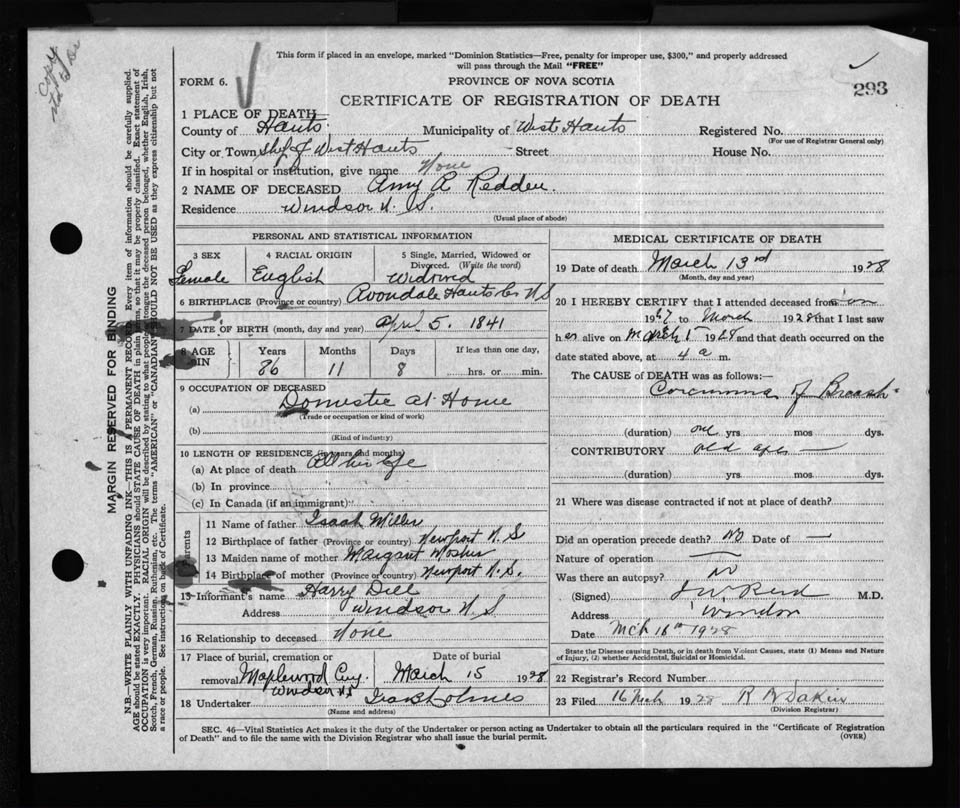 Copy
This form if placed in an envelope, marked "Dominion Statistics—Free, penalty for improper use, $300," and properly addressed
will pass through the Mail "FREE"
FORM 6.
PROVINCE OF NOVA SCOTIA
293
CERTIFICATE OF REGISTRATION OF DEATH
1 PLACE OF DEATH
County of Hants. Municipality of West Hants Registered No.
(For use of Registrar General only)
City or Town Shp of West Hants Street House No.
If in hospital or institution, give name None
2 NAME OF DECEASED Amy A Redden
Residence Windsor N. S.
(Usual place of abode)
PERSONAL AND STATISTICAL INFORMATION
3 SEX 4 RACIAL ORIGIN 5 Single, Married, Widowed or
Divorced. (Write the word)
Female English Widowed
6 BIRTHPLACE (Province or country) Avondale Hants Co N S
7 DATE OF BIRTH (month, day and year) April 5. 1841
8 AGE IN Years Months Days If less than one day,
86 11 8 hrs. or min.
9 OCCUPATION OF DECEASED
(a) Domestic at Home
(Trade or occupation or kind of work)
(b)
(Kind of industry)
10 LENGTH OF RESIDENCE (in years and months)
(a) At place of death All her life
(b) In province
(c) In Canada (if an immigrant)
Parents
11 Name of father Isaah Miller
12 Birthplace of father (Province or country) Newport N. S
13 Maiden name of mother Margaret Mosher
14 Birthplace of mother (Province or country) Newport N. S.
15 Informant's name Harry Dill
Address Windsor N. S
16 Relationship to deceased None
17 Place of burial, cremation or Date of burial
removal Maplewood Cemy. March 15 1928
Windsor N S
18 Undertaker
(Name and address)
MEDICAL CERTIFICATE OF DEATH
19 Date of death March 13rd 1928
(Month, day and year)
20 I HEREBY CERTIFY that I attended deceased from
1927 to March 1928 that I last saw
her alive on March 1928 and that death occurred on the
date stated above, at 4 a m.
The CAUSE of DEATH was as follows:—
of Breast
(duration) one yrs mos dys.
CONTRIBUTORY old age —
(duration) yrs. mos. dys.
21 Where was disease contracted if not at place of death?
Did an operation precede death? No Date of —
Nature of operation —
Was there an autopsy? No
(Signed) J W Reid M.D.
Address Windsor
Date Mch 16th 1928
State the Disease causing Death, or in death from Violent Causes, state (1) Means and Nature
of Injury, (2) whether Accidental, Suicidal or Homicidal.
22 Registrar's Record Number
23 Filed 16 Mch 1928 Dakin
(Division Registrar)
SEC. 46—Vital Statistics Act makes it the duty of the Undertaker or person acting as Undertaker to obtain all the particulars required in the "Certificate of Registration
of Death" and to file the same with the Division Registrar who shall issue the burial permit.
(OVER)
MARGIN RESERVED FOR BINDING
N.B.—WRITE PLAINLY WITH UNFADING INK—THIS IS A PERMANENT RECORD. Every item of information should be carefully supplied.
AGE should be stated EXACTLY. PHYSICIANS should STATE CAUSE OF DEATH in plain terms, so that it may be properly classified. Exact statement of
OCCUPATION is very important. RACIAL ORIGIN will be described by stating to what people or tongue the deceased person belonged, whether English, Irish,
Scotch, French, German, Russian, Ruthenian, etc. The terms "AMERICAN" or "CANADIAN" SHOULD NOT BE USED as they express citizenship but not
a race or people. See instructions on back of Certificate.